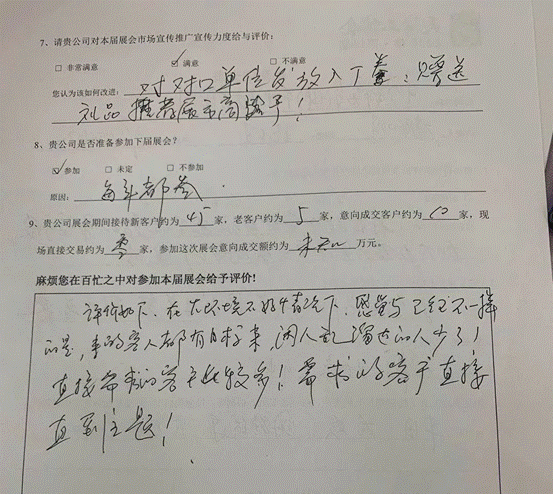 7、请贵公司对本届展会市场宣传推广宣传力度给与评价:
□ 非常满意 ☑ 满意 □ 不满意
您认为该如何改进: 对对口单位发放入 赠送
礼品 推荐展市商 !
8、贵公司是否准备参加下届展会?
☑ 参加 □ 未定 □ 不参加
原因: 每年都参.
9、贵公司展会期间接待新客户约为 45 家,老客户约为 5 家,意向成交客户约为 10 家,现
场直接交易约为 零 家,参加这次展会意向成交额约为 未知 万元。
麻烦您在百忙之中对参加本届展会给予评价!
评价如下、在大环境不好情况下、感觉与 不一样
的是,来的客人都有目标来,闲人乱溜达的人少了!
直接带求的客户比较多!需求的客户直接
直到主题!